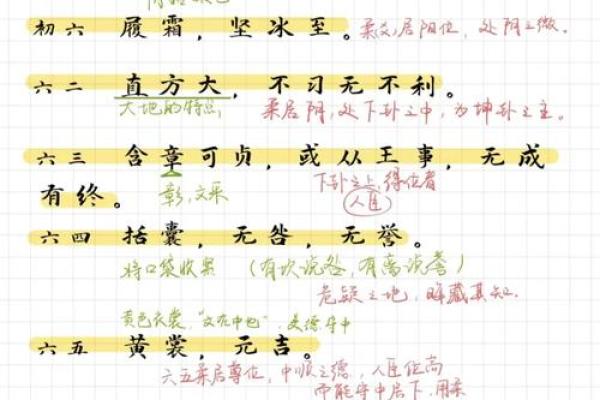 初六 履霜，坚冰至。柔爻居阳位，处阴之微。
六二 直方大，不习无不利。
大地的特点 柔居阴，处下卦之中，为坤卦之主。
六三 含章可贞，或从王事，无成
下卦之上，得位者
有终。 彰，文采 人臣
六四 括囊，无咎，无誉。
将口袋收紧 （有坎说咎，有离说誉）
危疑之地，晦藏其知.
黄色衣裳，“文在中也”，美德守中
六五 黄裳，元吉。
六五柔居尊位，中顺之德，人臣位高
而能守中居下，用柔